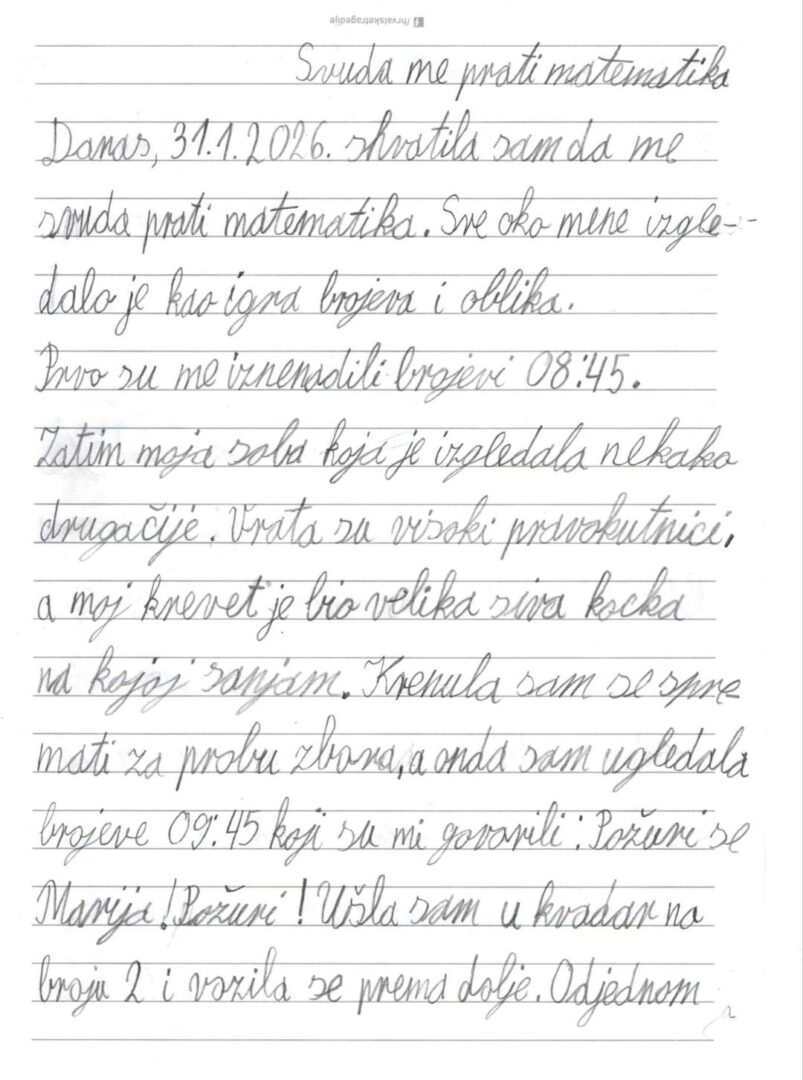 /hrvatsketragedije
Svuda me prati matematika
Danas, 31.1.2026. shvatila sam da me
svuda prati matematika. Sve oko mene izgle-
dalo je kao igra brojeva i oblika.
Prvo su me iznenadili brojevi 08:45.
Zatim moja soba koja je izgledala nekako
drugačije. Vrata su visoki pravokutnici,
a moj krevet je bio velika siva kocka
na kojoj sanjam. Krenula sam se spre
mati za probu zbora, a onda sam ugledala
brojeve 09:45 koji su mi govorili: Požuri se
Marija! Požuri! Ušla sam u kvadar na
broju 2 i vozila se prema dolje. Odjednom